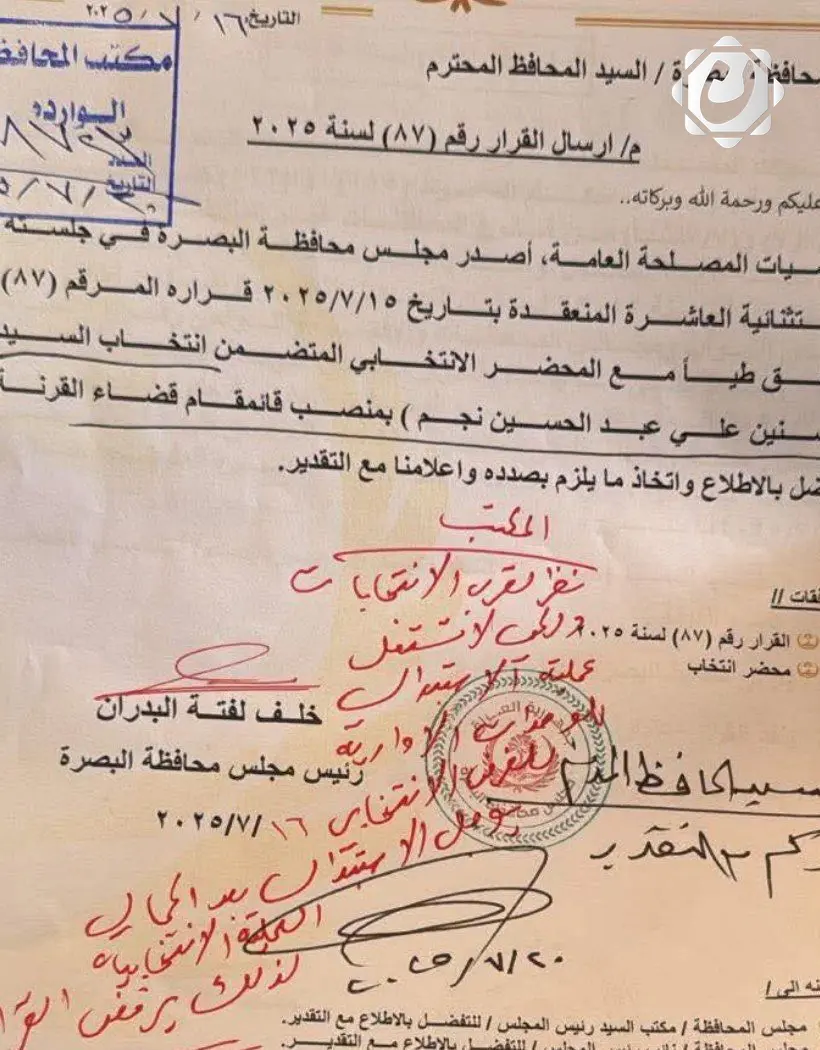 التاريخ: ١٦ / ٧ / ٢٠٢٥
مكتب المحافظ
الـواردة
العدد
التاريخ
محافظة البصرة / السيد المحافظ المحترم
م/ ارسال القرار رقم (٨٧) لسنة ٢٠٢٥
عليكم ورحمة الله وبركاته..
المصلحة العامة، أصدر مجلس محافظة البصرة في جلسته
العاشرة المنعقدة بتاريخ ٢٠٢٥/٧/١٥ قراره المرقم (٨٧)
طياً مع المحضر الانتخابي المتضمن انتخاب السيد
علي عبد الحسين نجم ) بمنصب قائمقام قضاء القرنة
بالاطلاع واتخاذ ما يلزم بصدده واعلامنا مع التقدير.
المكتب
نظراً لقرب الانتخابات
ولكي لا تستغل
عملية الاستبدال
الإدارية
للغرض الانتخابي
يؤجل الاستبدال بعد اكمال
العملية الانتخابية
لذلك يرفض
القرار رقم (٨٧) لسنة ٢٠٢٥
محضر انتخاب
خلف لفتة البدران
رئيس مجلس محافظة البصرة
٢٠٢٥/٧/١٦
السيد المحافظ المحترم
مع التقدير
٧/٢٠
الى /
مجلس المحافظة / مكتب السيد رئيس المجلس / للتفضل بالاطلاع مع التقدير.
مجلس المحافظة / نائب رئيس المجلس / للتفضل بالاطلاع مع التقدير.